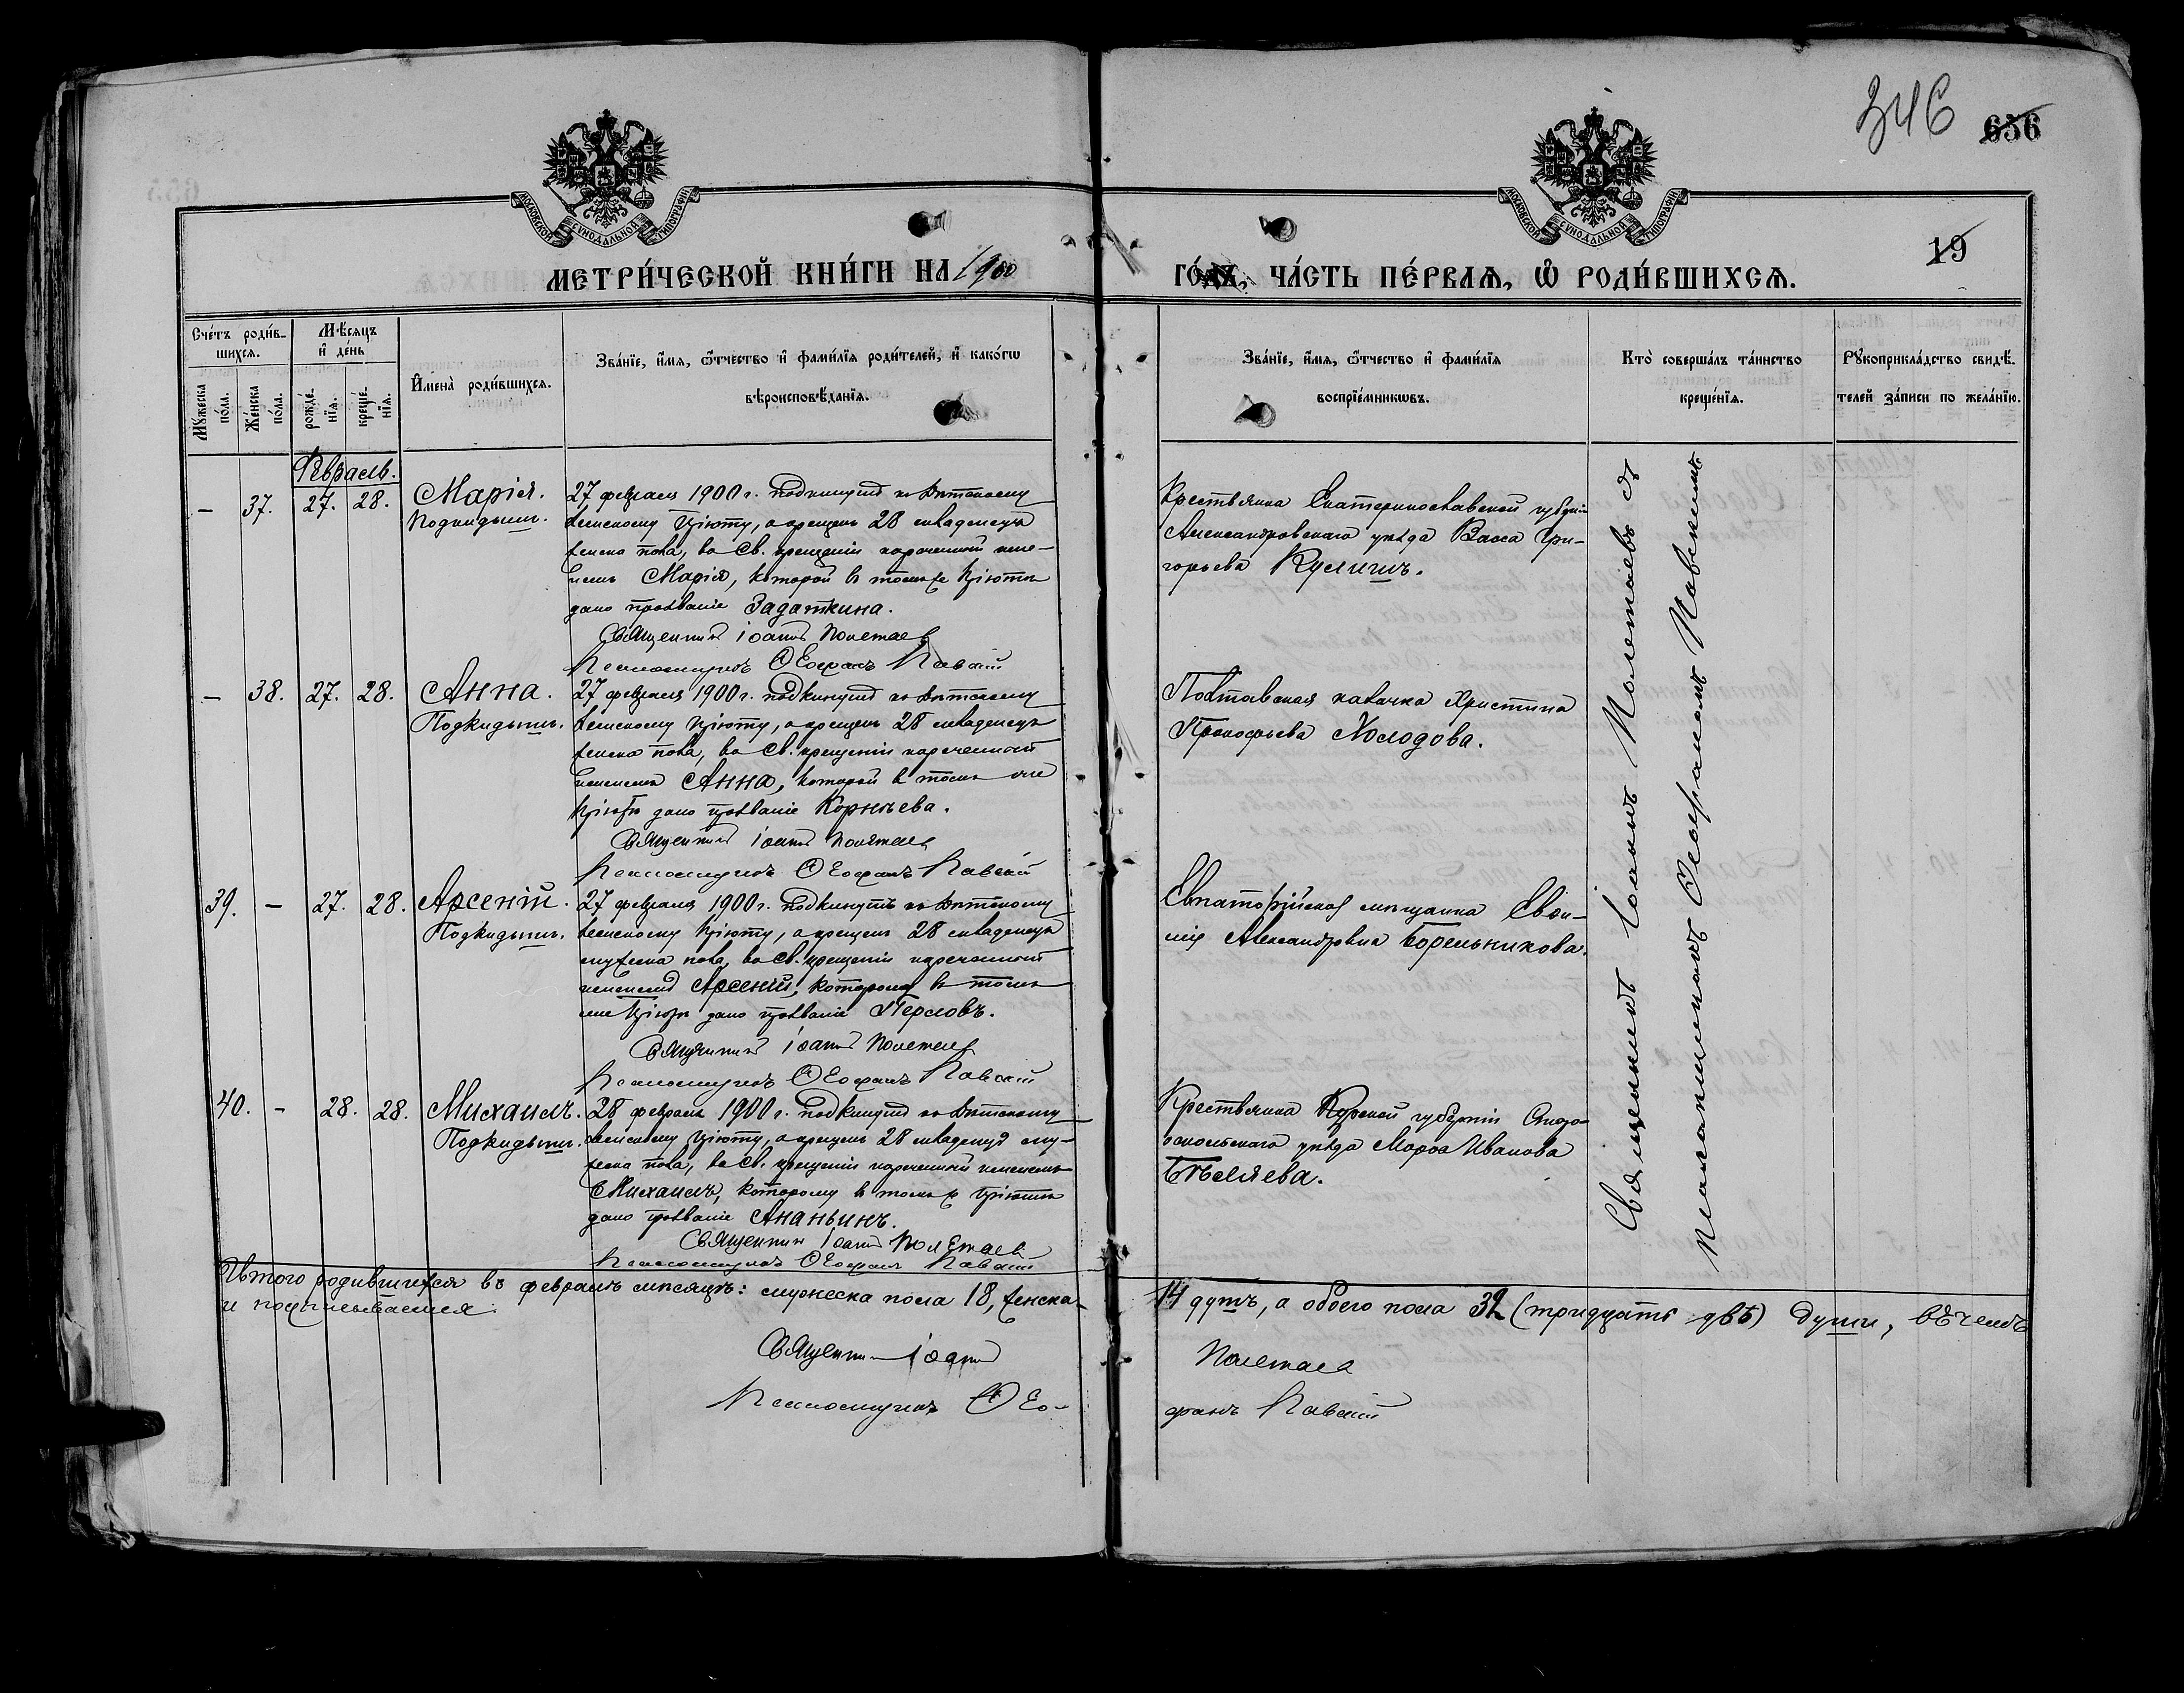 346 656
МОСКОВСКОЙ СѴНОДАЛЬНОЙ ТИПОГРАФІИ
МОСКОВСКОЙ СѴНОДАЛЬНОЙ ТИПОГРАФІИ
19
МЕТРИ́ЧЕСКОЙ КНИ́ГИ НА 1900
ГО́ДЪ, ЧА́СТЬ ПЕ́РВАѦ, Ѡ҆ РОДИ́ВШИХСѦ.
Сче́тъ роди́в-
шихсѧ.
Мꙋ́жеска по́ла.
Же́нска по́ла.
Мѣ́сѧцъ
и҆ де́нь
рожде́-
нїѧ.
креще́-
нїѧ.
И҆мена̀ роди́вшихсѧ.
Зва́нїе, и҆́мѧ, ѻ҆́тчество и҆ фами́лїѧ роди́телей, и҆ како́гѡ
вѣроисповѣ́данїѧ.
Зва́нїе, и҆́мѧ, ѻ҆́тчество и҆ фами́лїѧ
воспрїе́мникѡвъ.
Кто̀ соверша́лъ та́инство
креще́нїѧ.
Рꙋкоприкла́дство свидѣ́-
телей за́писи по жела́нїю.
Февраль.
— 37. 27. 28. Марія.
Подкидышъ.
27 февраля 1900 г. подкинутъ къ Дѣтскому
Земскому Пріюту, а крещенъ 28 младенецъ
женска пола, во Св. крещеніи нареченный име-
немъ Марія, которой въ томъ же Пріютѣ
дано прозваніе Задаткина.
Священникъ Іоаннъ Полетаевъ
Псаломщикъ Ѳеофанъ Павскій
Крестьянка Екатеринославской губерніи
Александровскаго уѣзда Васса Гри-
горьева Кулишъ.
— 38. 27. 28. Анна.
Подкидышъ.
27 февраля 1900 г. подкинутъ къ Дѣтскому
Земскому Пріюту, а крещенъ 28 младенецъ
женска пола, во Св. крещеніи нареченный
именемъ Анна, которой въ томъ же
Пріютѣ дано прозваніе Корнѣева.
Священникъ Іоаннъ Полетаевъ
Псаломщикъ Ѳеофанъ Павскій
Полтавская казачка Христина
Прокофьева Холодова.
39. — 27. 28. Арсеній.
Подкидышъ.
27 февраля 1900 г. подкинутъ къ Дѣтскому
Земскому Пріюту, а крещенъ 28 младенецъ
мужеска пола, во Св. крещеніи нареченный
именемъ Арсеній, которому въ томъ
же Пріютѣ дано прозваніе Перловъ.
Священникъ Іоаннъ Полетаевъ
Псаломщикъ Ѳеофанъ Павскій
Евпаторійская мѣщанка
Александровна
40. — 28. 28. Михаилъ.
Подкидышъ.
28 февраля 1900 г. подкинутъ къ Дѣтскому
Земскому Пріюту, а крещенъ 28 младенецъ му-
жеска пола, во Св. крещеніи нареченный именемъ
Михаилъ, которому въ томъ же Пріютѣ
дано прозваніе Ананьинъ.
Священникъ Іоаннъ Полетаевъ
Псаломщикъ Ѳеофанъ Павскій
Крестьянка Курской губерніи Старо-
оскольскаго уѣзда Марѳа Иванова
Бѣляева.
Священникъ Іоаннъ Полетаевъ съ
псаломщикомъ Ѳеофаномъ Павскимъ
Итого родившихся въ февралѣ мѣсяцѣ: мужеска пола 18, женска
14 душъ, а обоего пола 32 (тридцать двѣ) души, въ чемъ
и подписываемся.
Священникъ Іоаннъ Полетаевъ
Псаломщикъ Ѳео-
фанъ Павскій